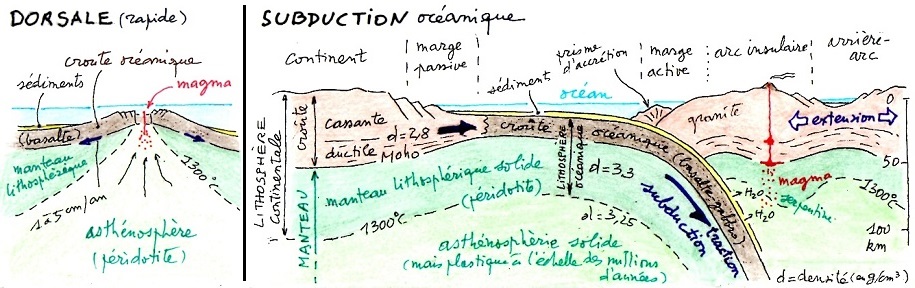 DORSALE (rapide)
croûte océanique
sédiments
magma
(basalte)
manteau
lithosphérique
1300°C
1 à 5 cm/an
asthénosphère
(péridotite)
SUBDUCTION océanique
Continent
marge
passive
sédiment
prisme
d'accrétion
marge
active
arc insulaire
arrière-
arc
océan
LITHOSPHÈRE
Continentale
croûte
cassante
d=2,8
ductile
Moho
MANTEAU
croûte océanique (basalte, gabbro)
LITHOSPHÈRE
océanique
granite
extension
0
50
100
km
manteau lithosphérique solide
(péridotite)
d=3,3
1300°C
d=3,25
asthénosphèrie solide
(mais plastique à l'échelle des millions
d'années)
subduction
traction
H₂O
H₂O
magma
serpentine
1300°C
d=densité (en g/cm³)